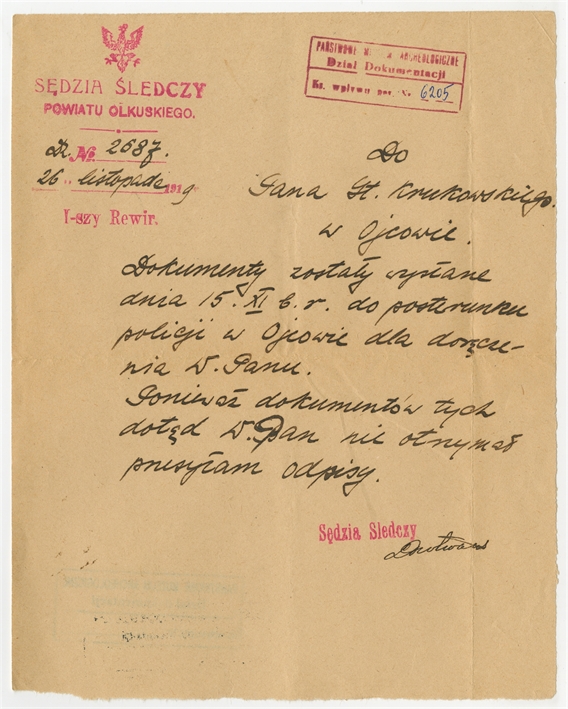 SĘDZIA ŚLEDCZY
POWIATU OLKUSKIEGO.
Dz. No. 2687.
26 listopada 1919
I-szy Rewir.
PAŃSTWOWE ARCHEOLOGICZNE
Dział Dokumentacji
Ks. wpływu poz. № 6205
Do
Pana St. Krukowskiego.
w Ojcowie.
Dokumenty zostały wysłane
dnia 15. XI b. r. do posterunku
policji w Ojcowie dla doręcze-
nia W. Panu.
Ponieważ dokumentów tych
dotąd W. Pan nie otrzymał
przesyłam odpisy.
Sędzia Śledczy